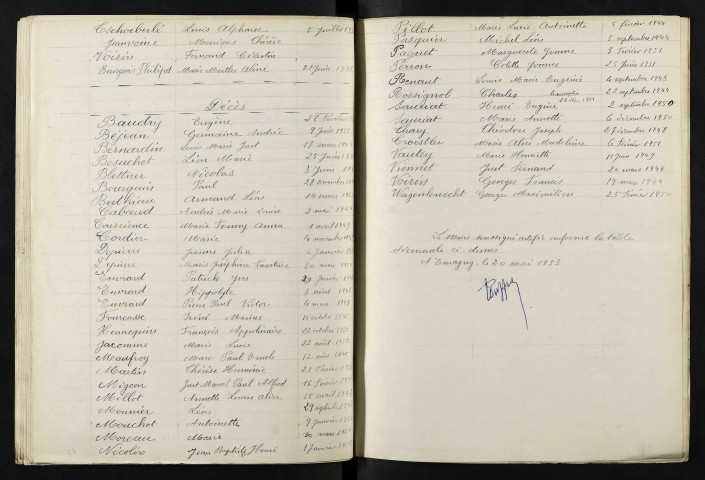 Tschoeberlé Louis Alphonse 5 juillet
Janvoine Monique Thérèse
Voirin Fernand Célestin
Bourgeois Philippe Marie Marthe Aline 21 Juin
Décès
Baudry Eugène 28 Février
Bejean Germaine Andrée 7 Juin 1951
Bernardin Louis Marie Just 17 mars
Besuchet Léon Marie 25 Juin
Blettner Nicolas 3 Juin
Bourquin Paul 28 novembre
Armand Léon 10 mars
Cabaud André Marie Louis 2 mai 1944
Marie Fanny Anna 1 avril 1949
Cordier Marie 4 novembre
Depierre Jeanne Julia 6 Janvier
Depierre Marie Joséphine Faustine 30 mai
Euvrard Patrick Yves 29 Janvier
Euvrard Hippolyte 2 août
Euvrard Pierre Paul Victor 4 mars
Fourcasse Iréné Marius octobre
Hennequin François Appolinaire 22 octobre
Jacomme Marie Lucie 22 août
Maufroy Marc Paul Emile 12 août
Martin Thérèse Herminie 21 Février
Migeon Just Marcel Paul Alfred 16 février
Millot Annette Louise Alice 18 avril
Monnier Léon 29 septembre
Mouchot Antoinette 9 Janvier
Moreau Marie 20 mars
Nicolin Jean Baptiste Henri 1 Janvier
Pillot Marie Lucie Antoinette 5 février 1944
Pasquier Michel Léon 5 septembre 1944
Paquet Marguerite Yvonne 3 Février 1951
Perron Colette Yvonne 25 Juin 1951
Renaut Louise Marie Eugénie 4 septembre 1943
Rossignol Charles 22 septembre 1944
Henri Eugène 2 septembre 1950
Sauriat Marie Annette 6 décembre 1950
Théodore Joseph 27 décembre 1948
Troestler Marie Alice Madeleine 6 Février 1951
Vautey Marie Henriette 11 Juin 1949
Viennet Just Fernand 20 mars 1946
Voirin Georges Francis 19 mars 1944
Wagenknecht George Maximilien 25 Février 1950
Le Maire soussigné certifie conforme la table
décennale ci-dessus
A Tavagny le 20 mai 1953